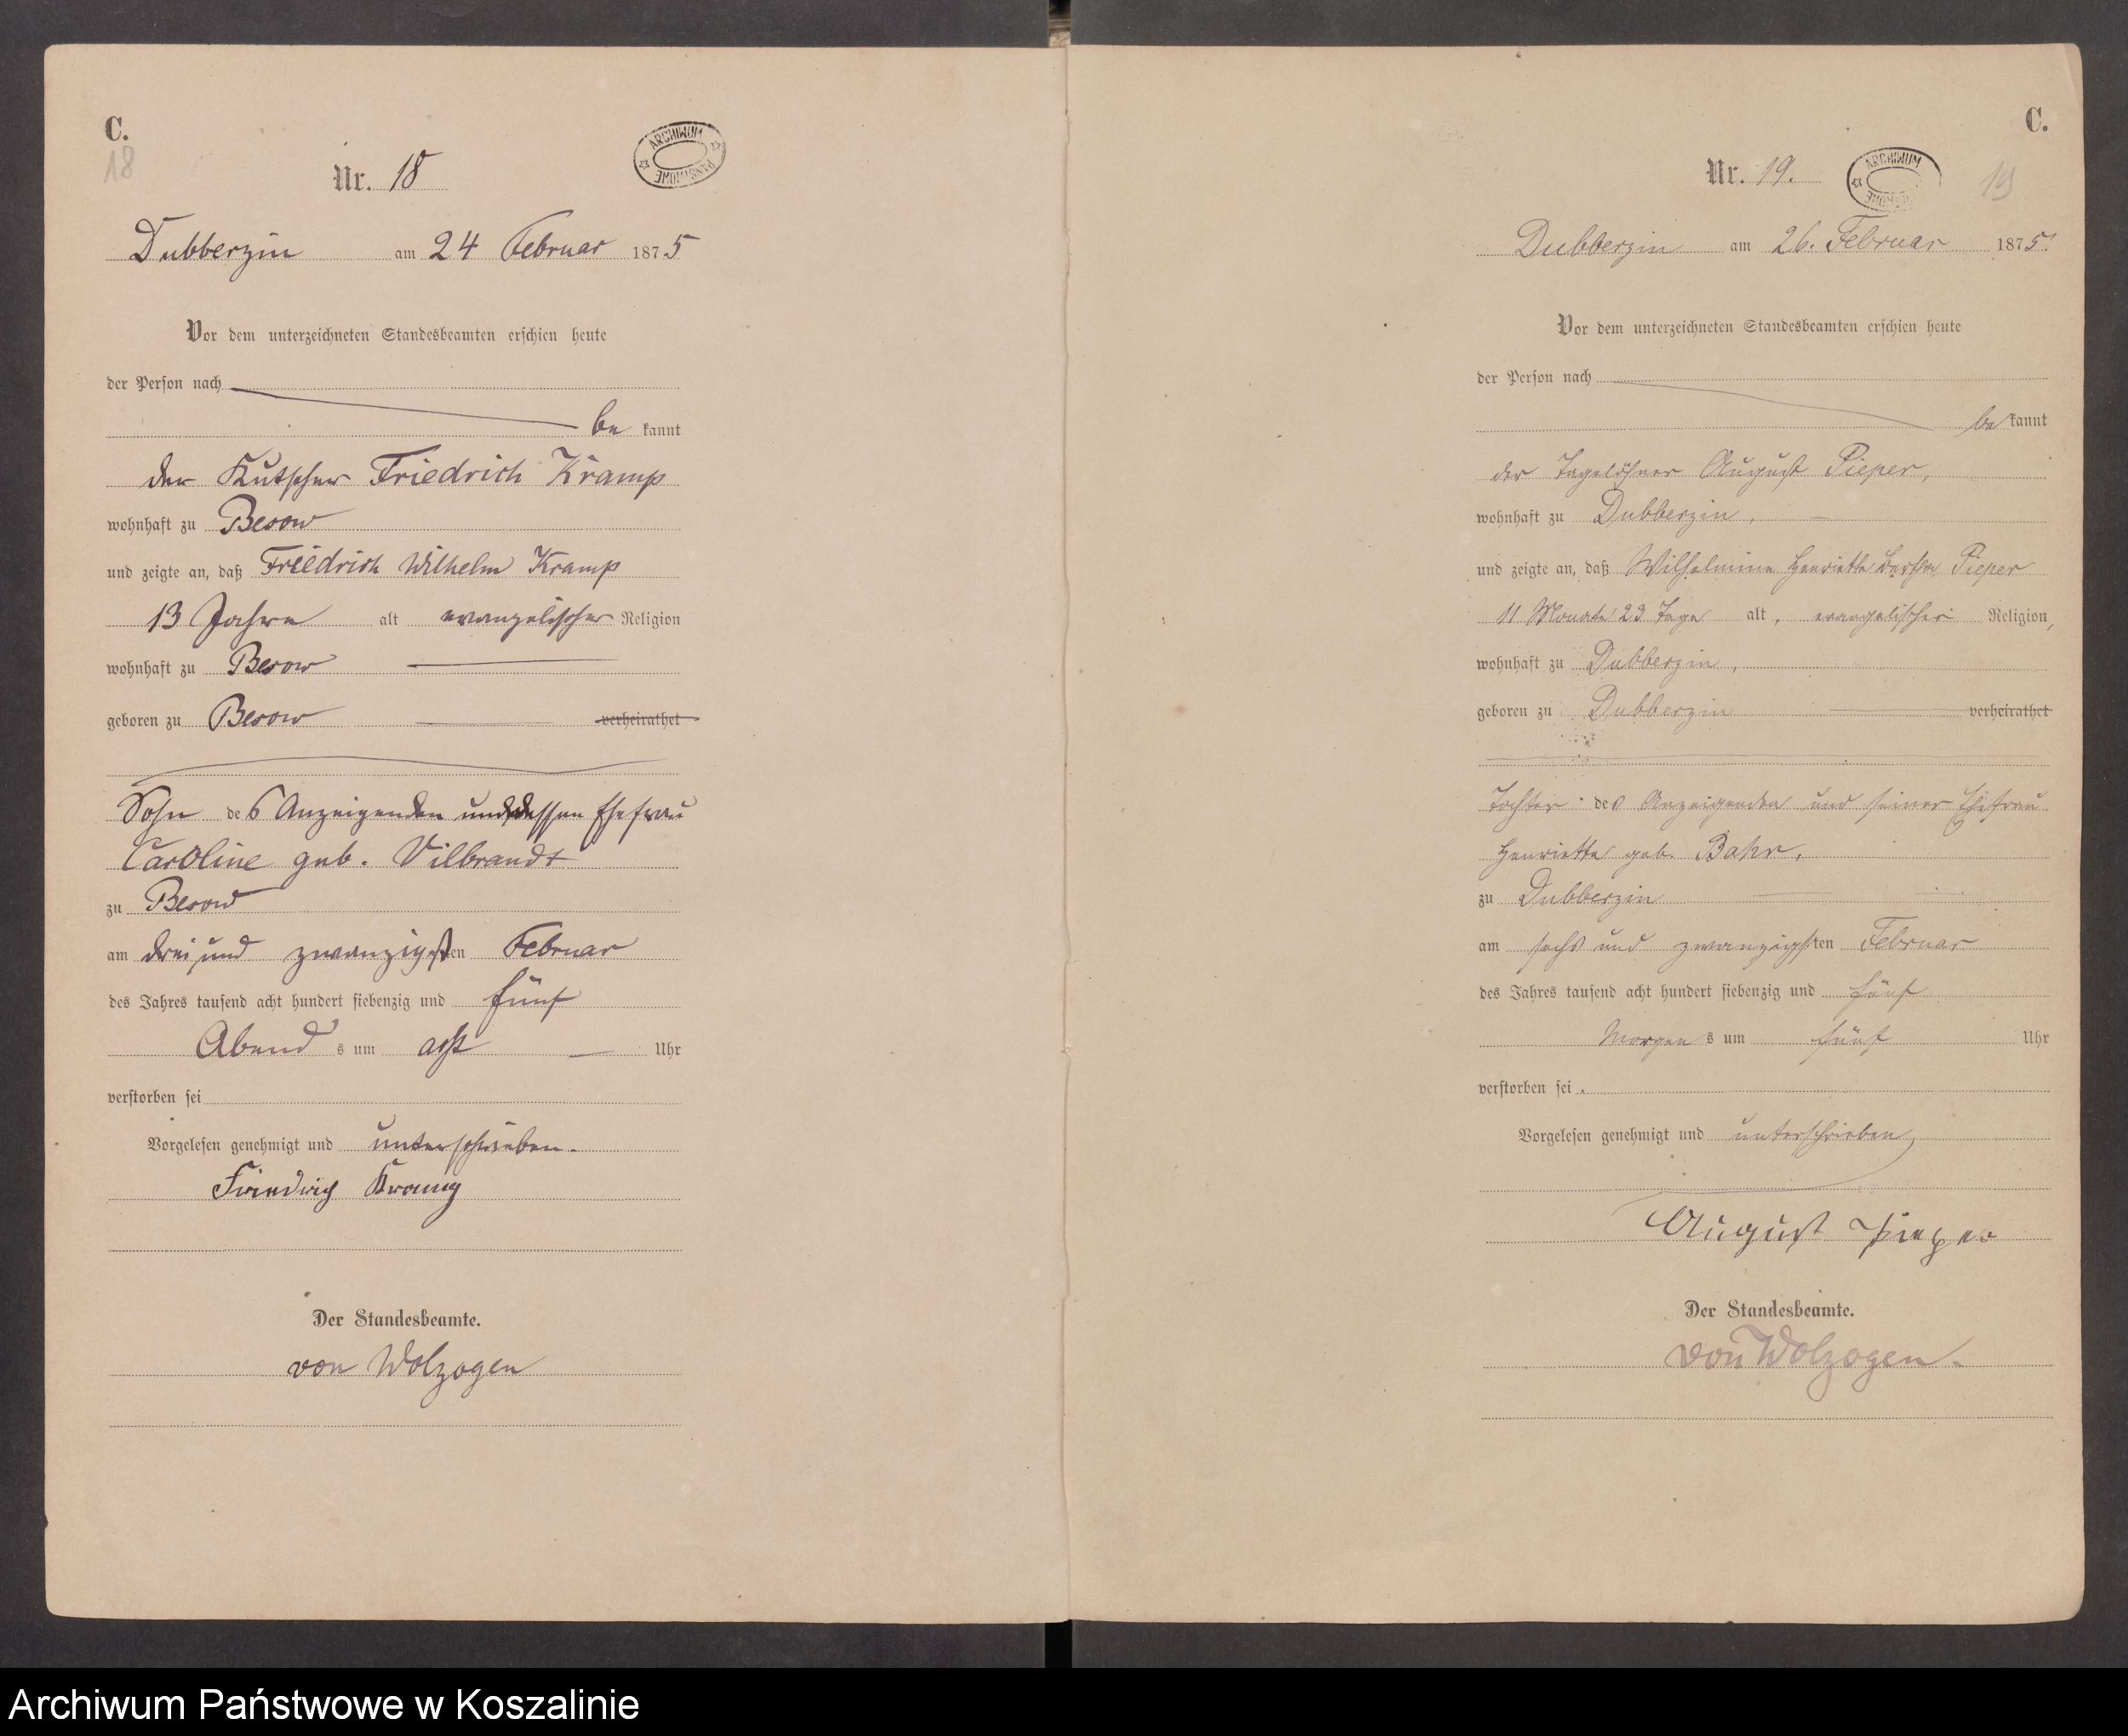 C.
18
Nr. 18
ARCHIWUM PAŃSTWOWE
Dubberzin am 24 Februar 1875
Vor dem unterzeichneten Standesbeamten erschien heute
der Person nach
be kannt
der Kutscher Friedrich Kramp
wohnhaft zu Besow
und zeigte an, daß Friedrich Wilhelm Kramp
13 Jahre alt evangelischer Religion
wohnhaft zu Besow
geboren zu Besow verheirathet
Sohn des Anzeigenden und dessen Ehefrau
Caroline geb. Vilbrandt
zu Besow
am drei und zwanzigsten Februar
des Jahres tausend acht hundert siebenzig und fünf
Abend s um acht Uhr
verstorben sei
Vorgelesen genehmigt und unterschrieben.
Friedrich Kramp
Der Standesbeamte.
von Wolzogen
C.
Nr. 19.
ARCHIWUM
19
Dubberzin am 26. Februar 1875.
Vor dem unterzeichneten Standesbeamten erschien heute
der Person nach
be kannt
der Tagelöhner August Pieper,
wohnhaft zu Dubberzin,
und zeigte an, daß Wilhelmine Henriette Bertha Pieper
11 Monate 23 Tage alt, evangelischer Religion,
wohnhaft zu Dubberzin,
geboren zu Dubberzin verheirathet
Tochter des Anzeigenden und seiner Ehefrau
Henriette geb. Bahr,
zu Dubberzin
am sechs und zwanzigsten Februar
des Jahres tausend acht hundert siebenzig und fünf
Morgen s um fünf Uhr
verstorben sei.
Vorgelesen genehmigt und unterschrieben
August Pieper
Der Standesbeamte.
von Wolzogen.
Archiwum Państwowe w Koszalinie